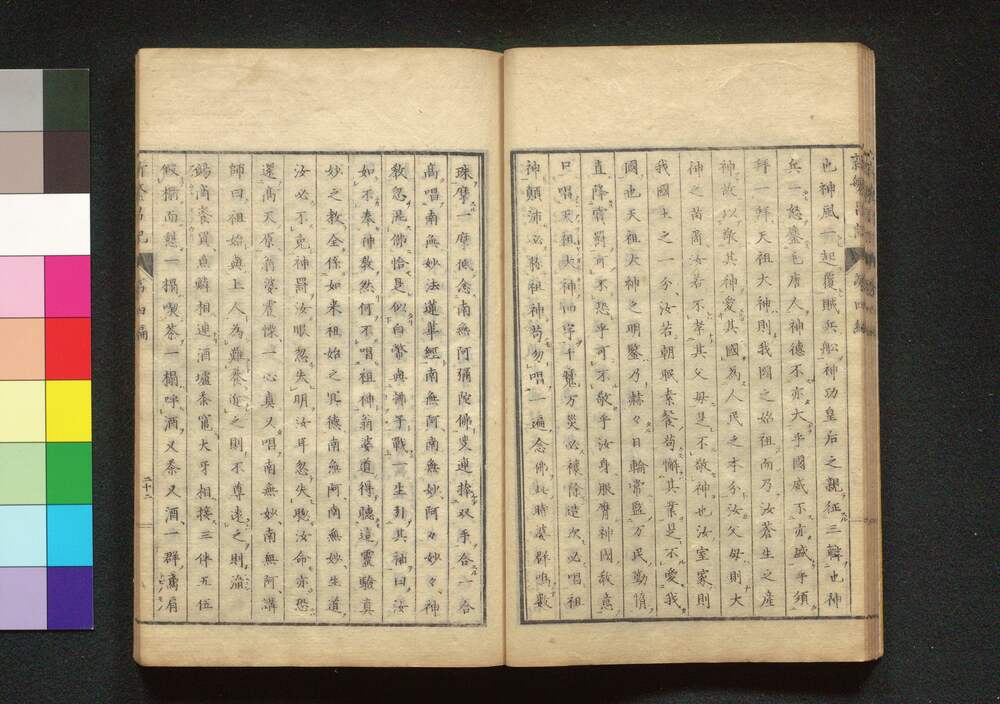 也神風一起覆賊兵舩神功皇后之親征三韓也神
兵一怒鏖
唐人神德不亦大乎國威不亦盛乎須
拜一拜天祖大神則我國之始祖而乃汝蒼生之產
神故以敬其神愛其國為人民之本分汝父母則大
神之苗裔汝若不孝其父母是不敬神也汝室家則
我國土之一分汝若朝眠素餐苟懈其業是不愛我
國也天祖大神之明鑒乃赫々日輪常監万民勤惰
直降賞罰可不恐乎可不敬乎汝身服膺神國教意
只唱天祖大神四字千
万災必禳除造次必唱祖
神顛沛必
祖神苟勿唱一遍念佛此時婆群鳴數
珠摩一摩低念南無阿彌陀佛
連
双手合一合
高唱南無妙法蓮華經南無阿南無妙阿々妙々神
教忽混佛恰是似白幣與拂子戰一生引其袖曰汝
如不奉神教然何不唱祖神翁婆道得聽這靈驗真
妙之教全係如來祖始之
德南無阿南無妙生道
汝必不免神罰汝眼忽失明汝耳忽失聽汝命亦恐
還高天原翁婆震慄一心真又唱南無妙南無阿講
師曰祖始與上人為難養近之則不尊遠之則
師曰
鬻
買
鱗相連酒壚茶竈犬牙相接三伴五伍
倣榻而憩一榻喫茶一榻呼酒又茶又酒一群
肩
四編
二十二